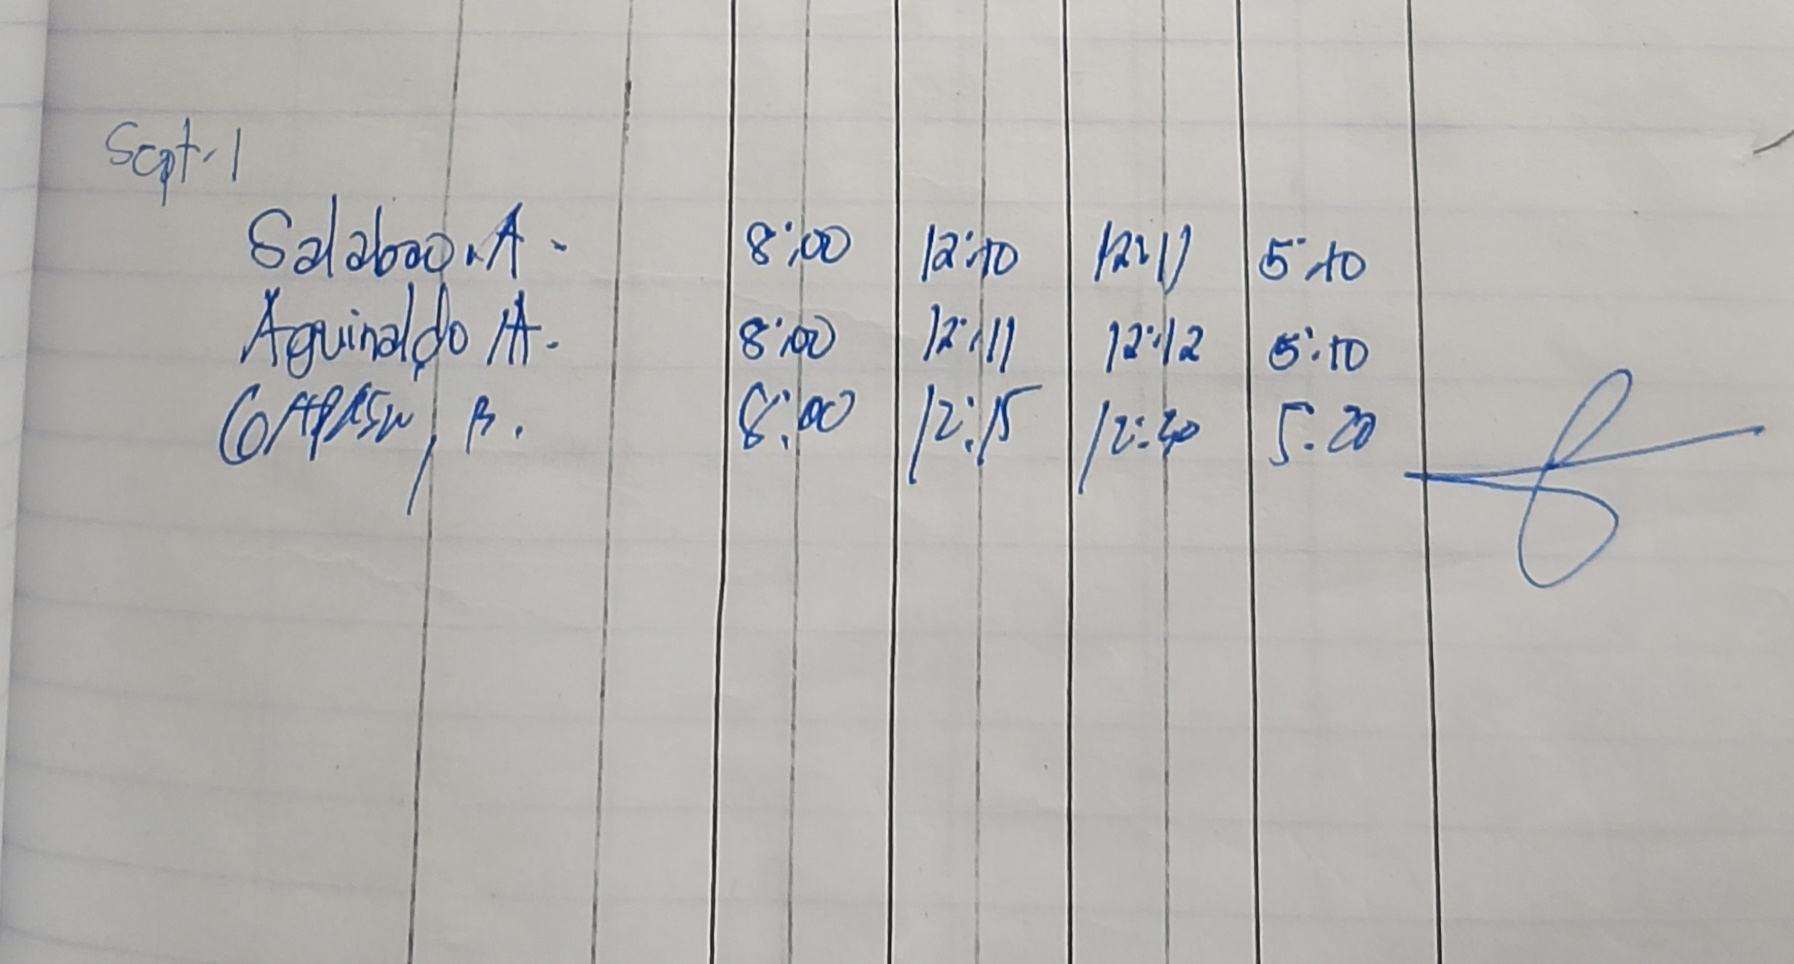 Sept. 1
Salabao. A - 8:00 12:10 12:11 5:10
Aguinaldo A. 8:00 12:11 12:12 5:10
B. 8:00 12:15 5:20